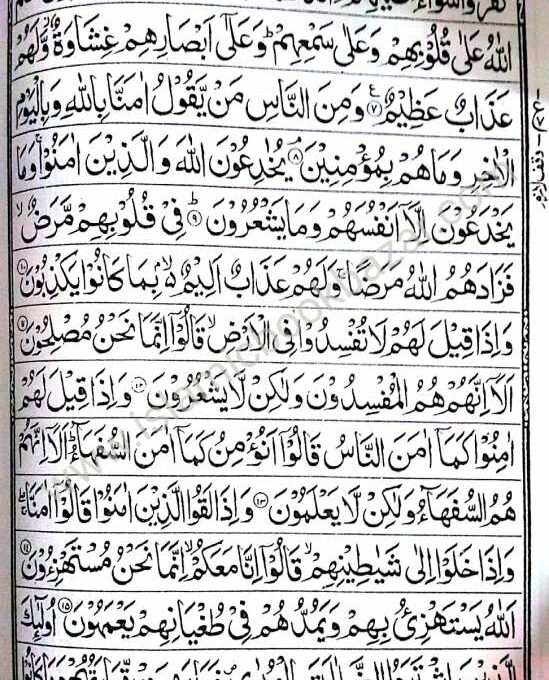 اللّٰهُ عَلٰى قُلُوْبِهِمْ وَعَلٰى سَمْعِهِمْ ؕ وَعَلٰٓى اَبْصَارِهِمْ غِشَاوَةٌ ؗ وَّلَهُمْ
عَذَابٌ عَظِيْمٌ ﴿۷﴾ وَمِنَ النَّاسِ مَنْ يَّقُوْلُ اٰمَنَّا بِاللّٰهِ وَبِالْيَوْمِ
الْاٰخِرِ وَمَا هُمْ بِمُؤْمِنِيْنَ ﴿۸﴾ يُخٰدِعُوْنَ اللّٰهَ وَالَّذِيْنَ اٰمَنُوْا ۚ وَمَا
يَخْدَعُوْنَ اِلَّآ اَنْفُسَهُمْ وَمَا يَشْعُرُوْنَ ﴿۹﴾ فِيْ قُلُوْبِهِمْ مَّرَضٌ ۙ
فَزَادَهُمُ اللّٰهُ مَرَضًا ۚ وَلَهُمْ عَذَابٌ اَلِيْمٌ ۙ۬ بِمَا كَانُوْا يَكْذِبُوْنَ ﴿۱۰﴾
وَاِذَا قِيْلَ لَهُمْ لَا تُفْسِدُوْا فِى الْاَرْضِ ۙ قَالُوْٓا اِنَّمَا نَحْنُ مُصْلِحُوْنَ ﴿۱۱﴾
اَلَآ اِنَّهُمْ هُمُ الْمُفْسِدُوْنَ وَلٰكِنْ لَّا يَشْعُرُوْنَ ﴿۱۲﴾ وَاِذَا قِيْلَ لَهُمْ
اٰمِنُوْا كَمَآ اٰمَنَ النَّاسُ قَالُوْٓا اَنُؤْمِنُ كَمَآ اٰمَنَ السُّفَهَآءُ ؕ اَلَآ اِنَّهُمْ
هُمُ السُّفَهَآءُ وَلٰكِنْ لَّا يَعْلَمُوْنَ ﴿۱۳﴾ وَاِذَا لَقُوا الَّذِيْنَ اٰمَنُوْا قَالُوْٓا اٰمَنَّا ۖۚ
وَاِذَا خَلَوْا اِلٰى شَيٰطِيْنِهِمْ ۙ قَالُوْٓا اِنَّا مَعَكُمْ ۙ اِنَّمَا نَحْنُ مُسْتَهْزِءُوْنَ ﴿۱۴﴾
اَللّٰهُ يَسْتَهْزِئُ بِهِمْ وَيَمُدُّهُمْ فِيْ طُغْيَانِهِمْ يَعْمَهُوْنَ ﴿۱۵﴾ اُولٰٓئِكَ
www.islamicbookbazaar.com